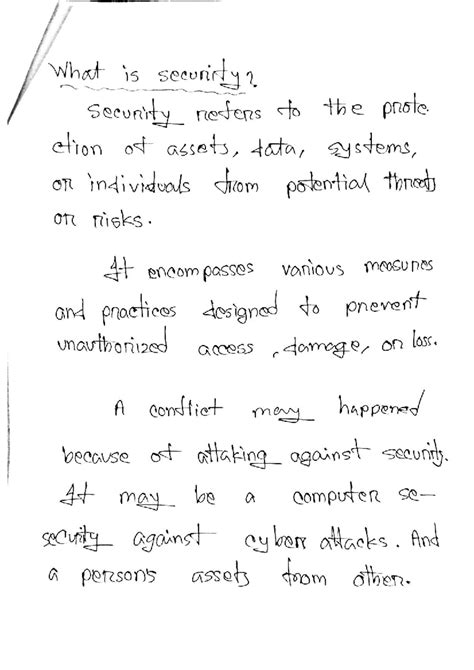 What is security?
Security refers to the prote
ction of assets, data, systems,
or individuals from potential threats
or risks.
It encompasses various measures
and practices designed to prevent
unauthorized access, damage, or loss.
A conflict may happened
because of attaking against security.
It may be a computer se-
security against cyber attacks. And
a person's assets from other.